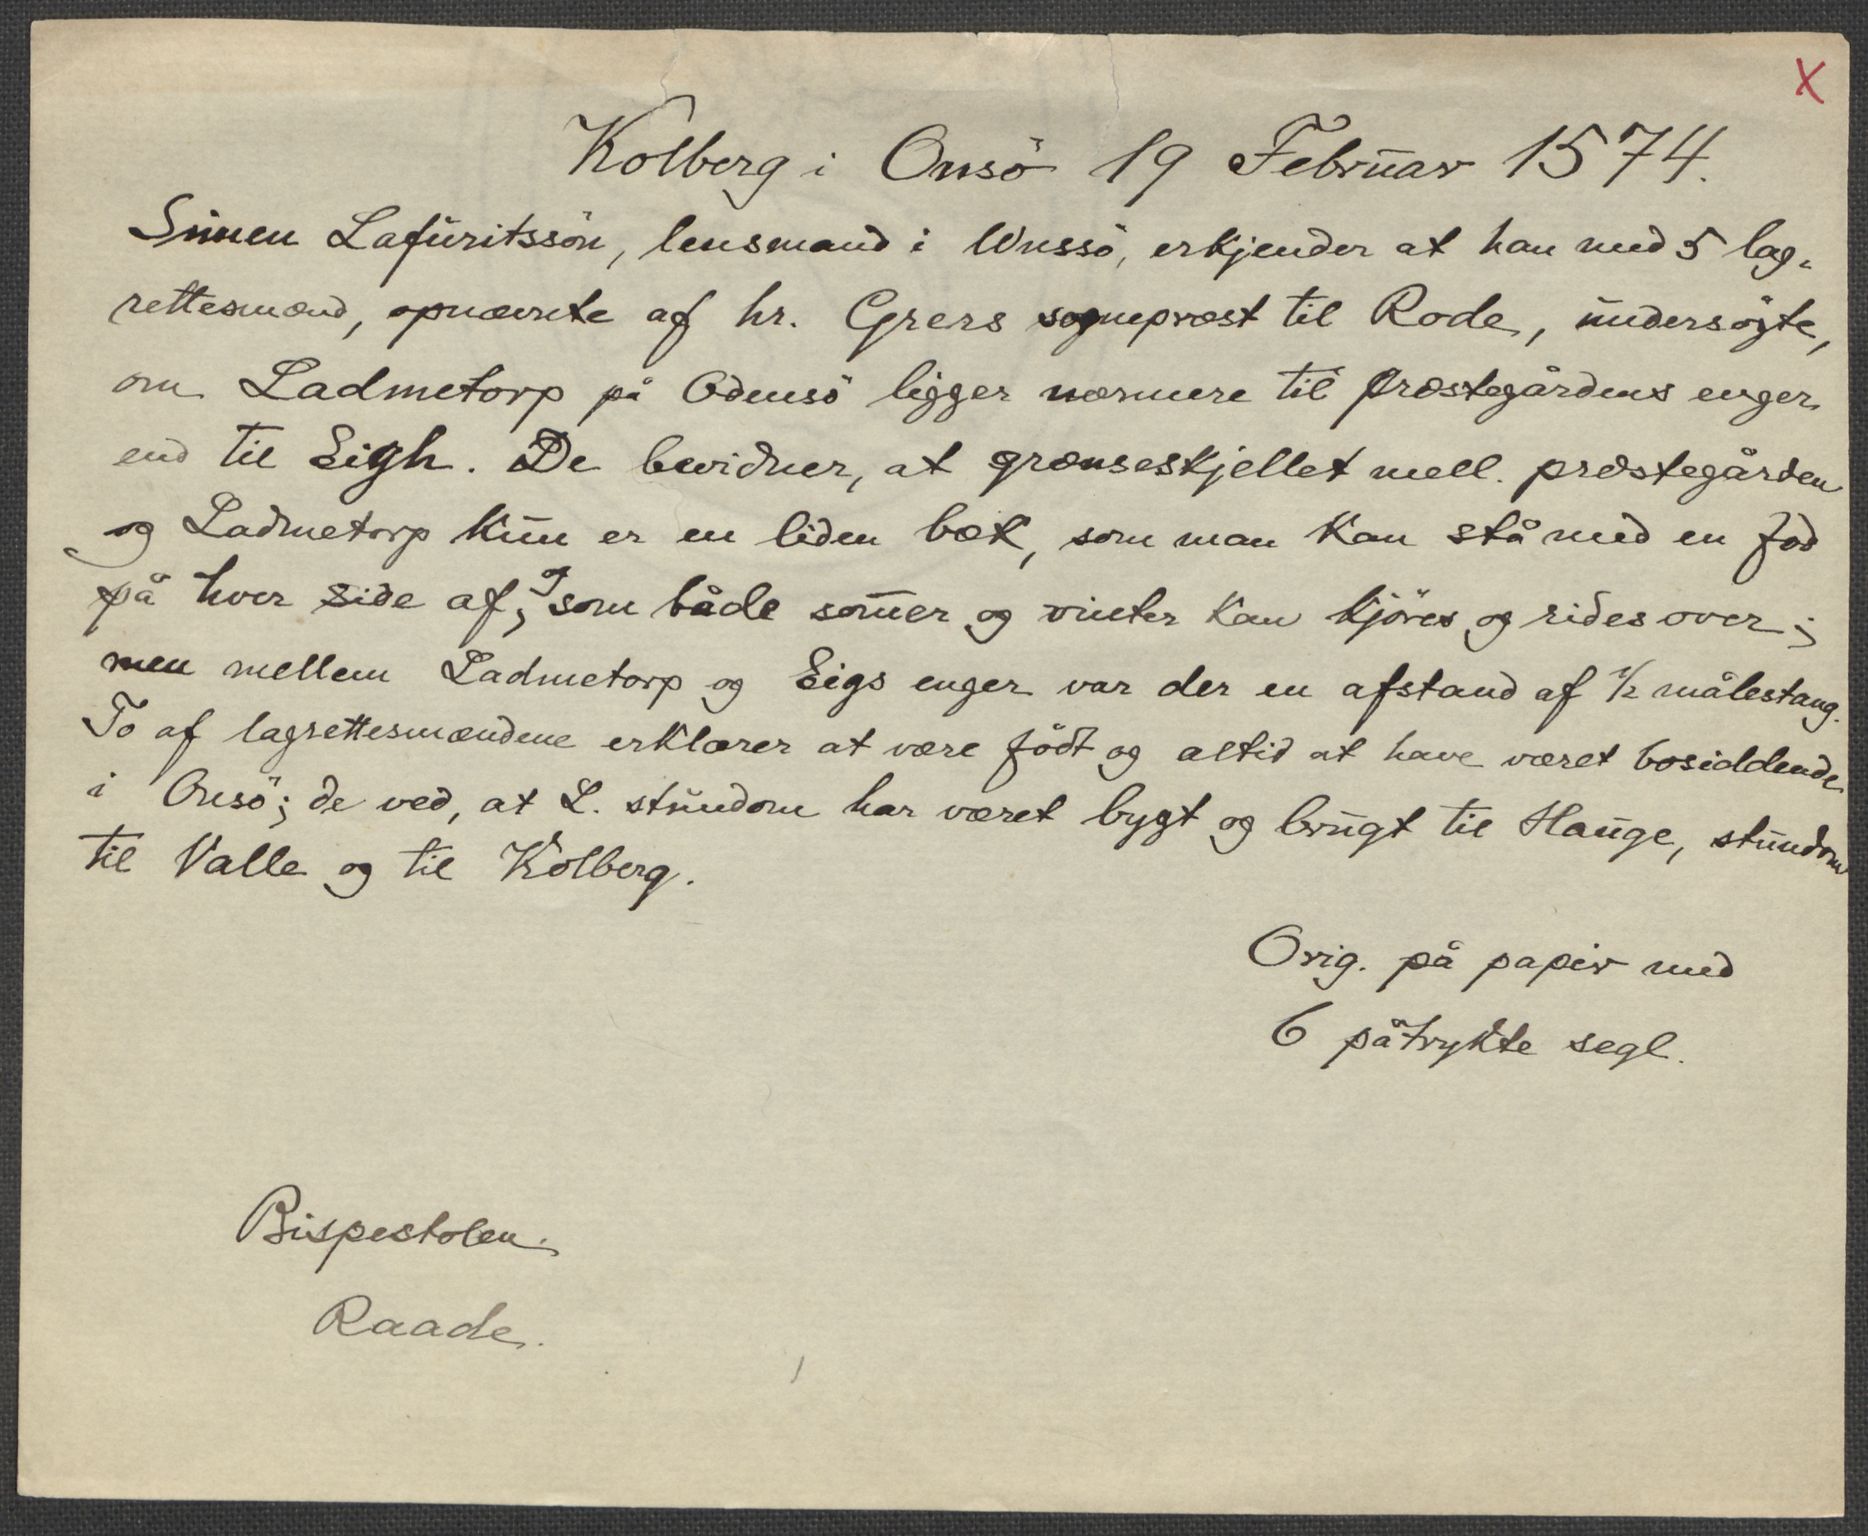 X
Kolberg i Onsö 19 Februar 1574.
Simen Lafuritssön, lensmand i Wnssö, erkjender at han med 5 lag-
rettesmænd, opnævnte af hr. Grers sogneprest til Rode, undersögte,
om Ladmetorp på Odensö ligger nærmere til præstegårdens enger
end til Eigh. De bevidner, at grænseskjellet mell. præstegården
og Ladmetorp kun er en liden bæk, som man kan stå med en fod
på hver side af, og som både som̅er og vinter kan kjöres og rides over;
men mellem Ladmetorp og Eigs enger var der en afstand af ½ målestang.
To af lagrettesmændene erklærer at være född og altid at have været bosiddende
i Onsö; de ved, at L. stundom har været bygt og brugt til Hauge, stundom
til Valle og til Kolberg.
Orig. på papir med
6 påtrykte segl.
Bispestolen.
Raade.